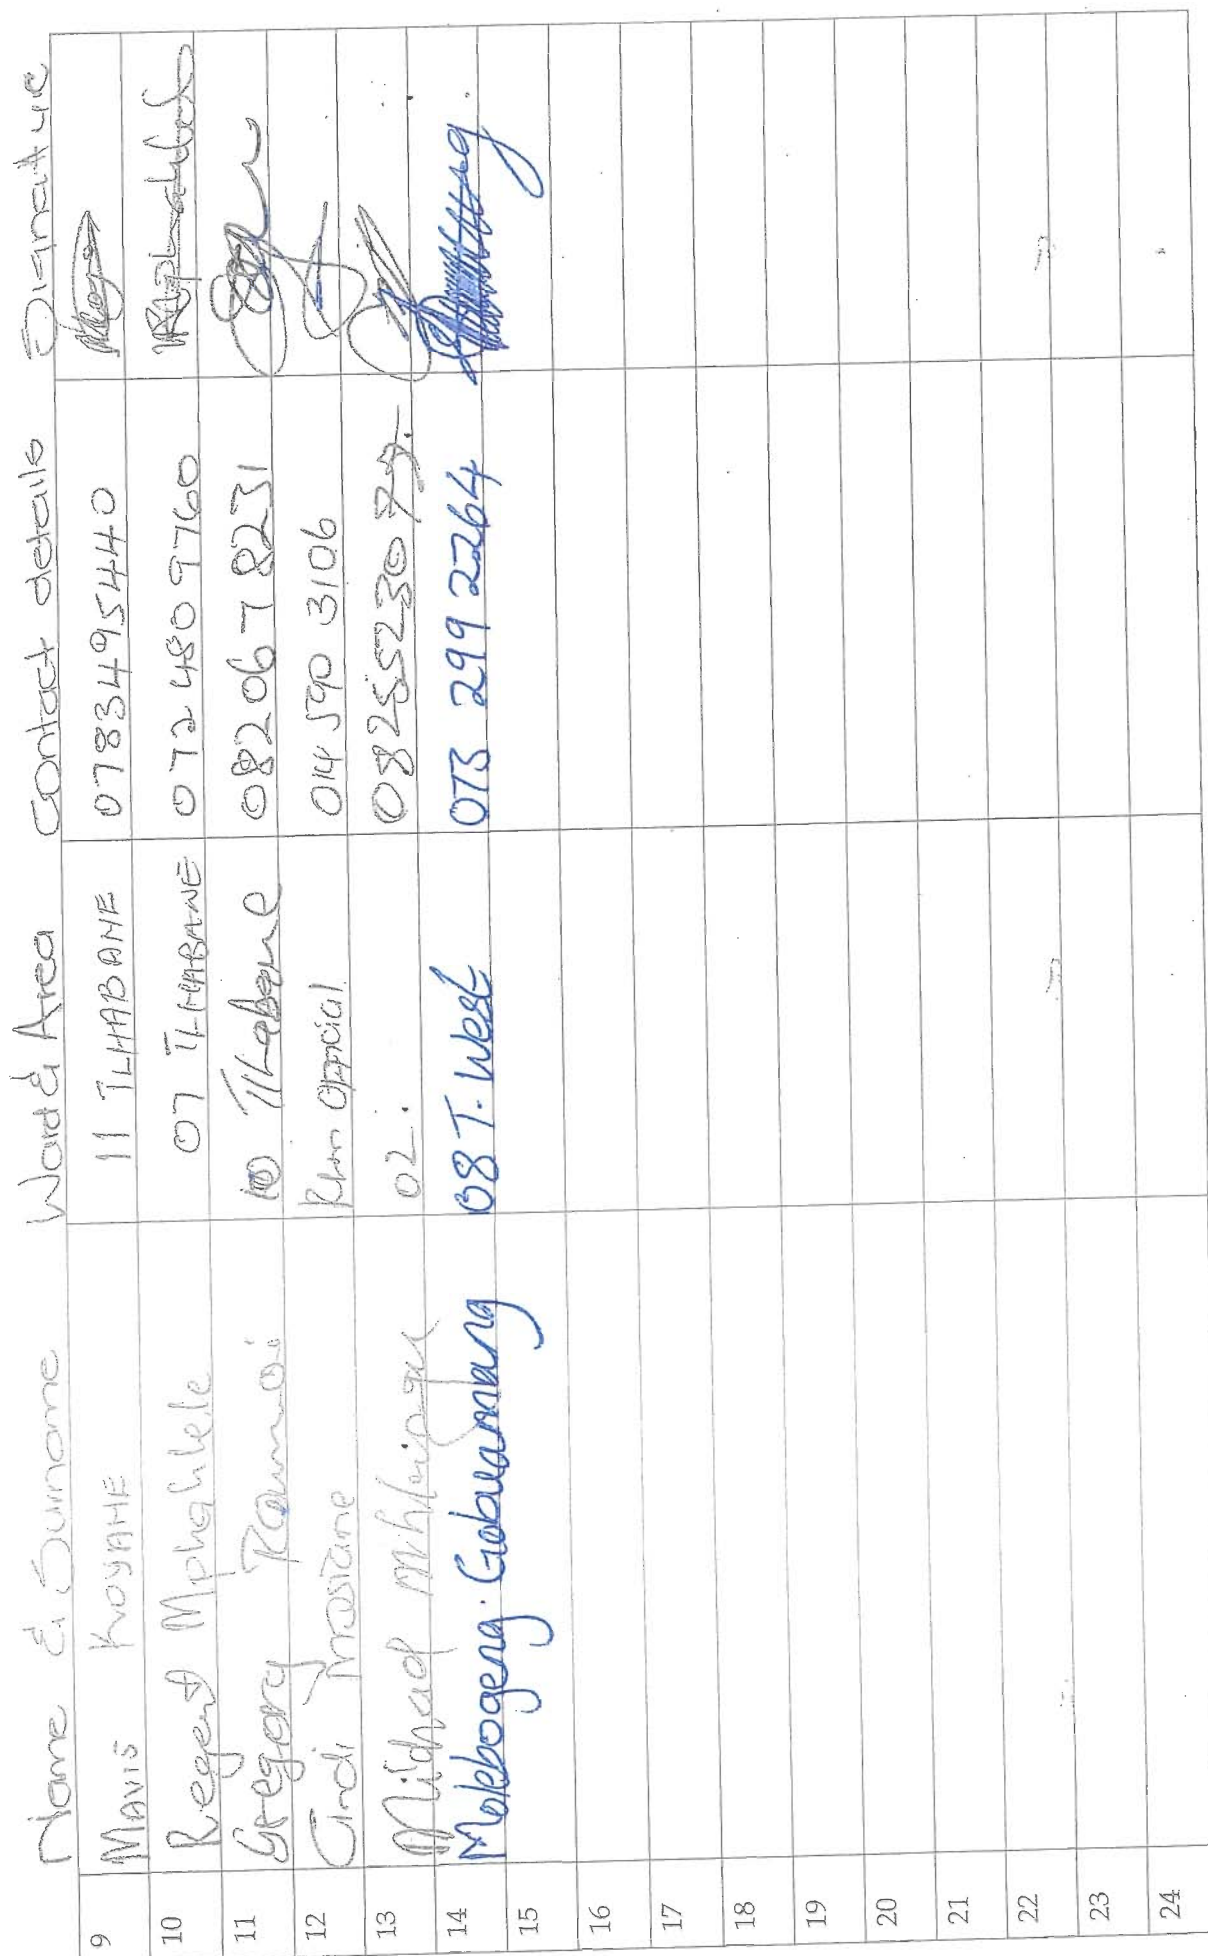 Name & Surname Ward & Area Contact details Signature
9 MAVIS KOYANE 11 TLHABANE 0783495440
10 Regent Mphahlele 07 TLHABANE 072 480 9760
11 Gregory 10 Tlhabane 082 067 8231
12 Cindi Mosiane Rlm Official 014 590 3106
13 Michael 02. 082552307
14 Molebogeng. Gabuamang 08 T. West 073 299 2264
15
16
17
18
19
20
21
22
23
24